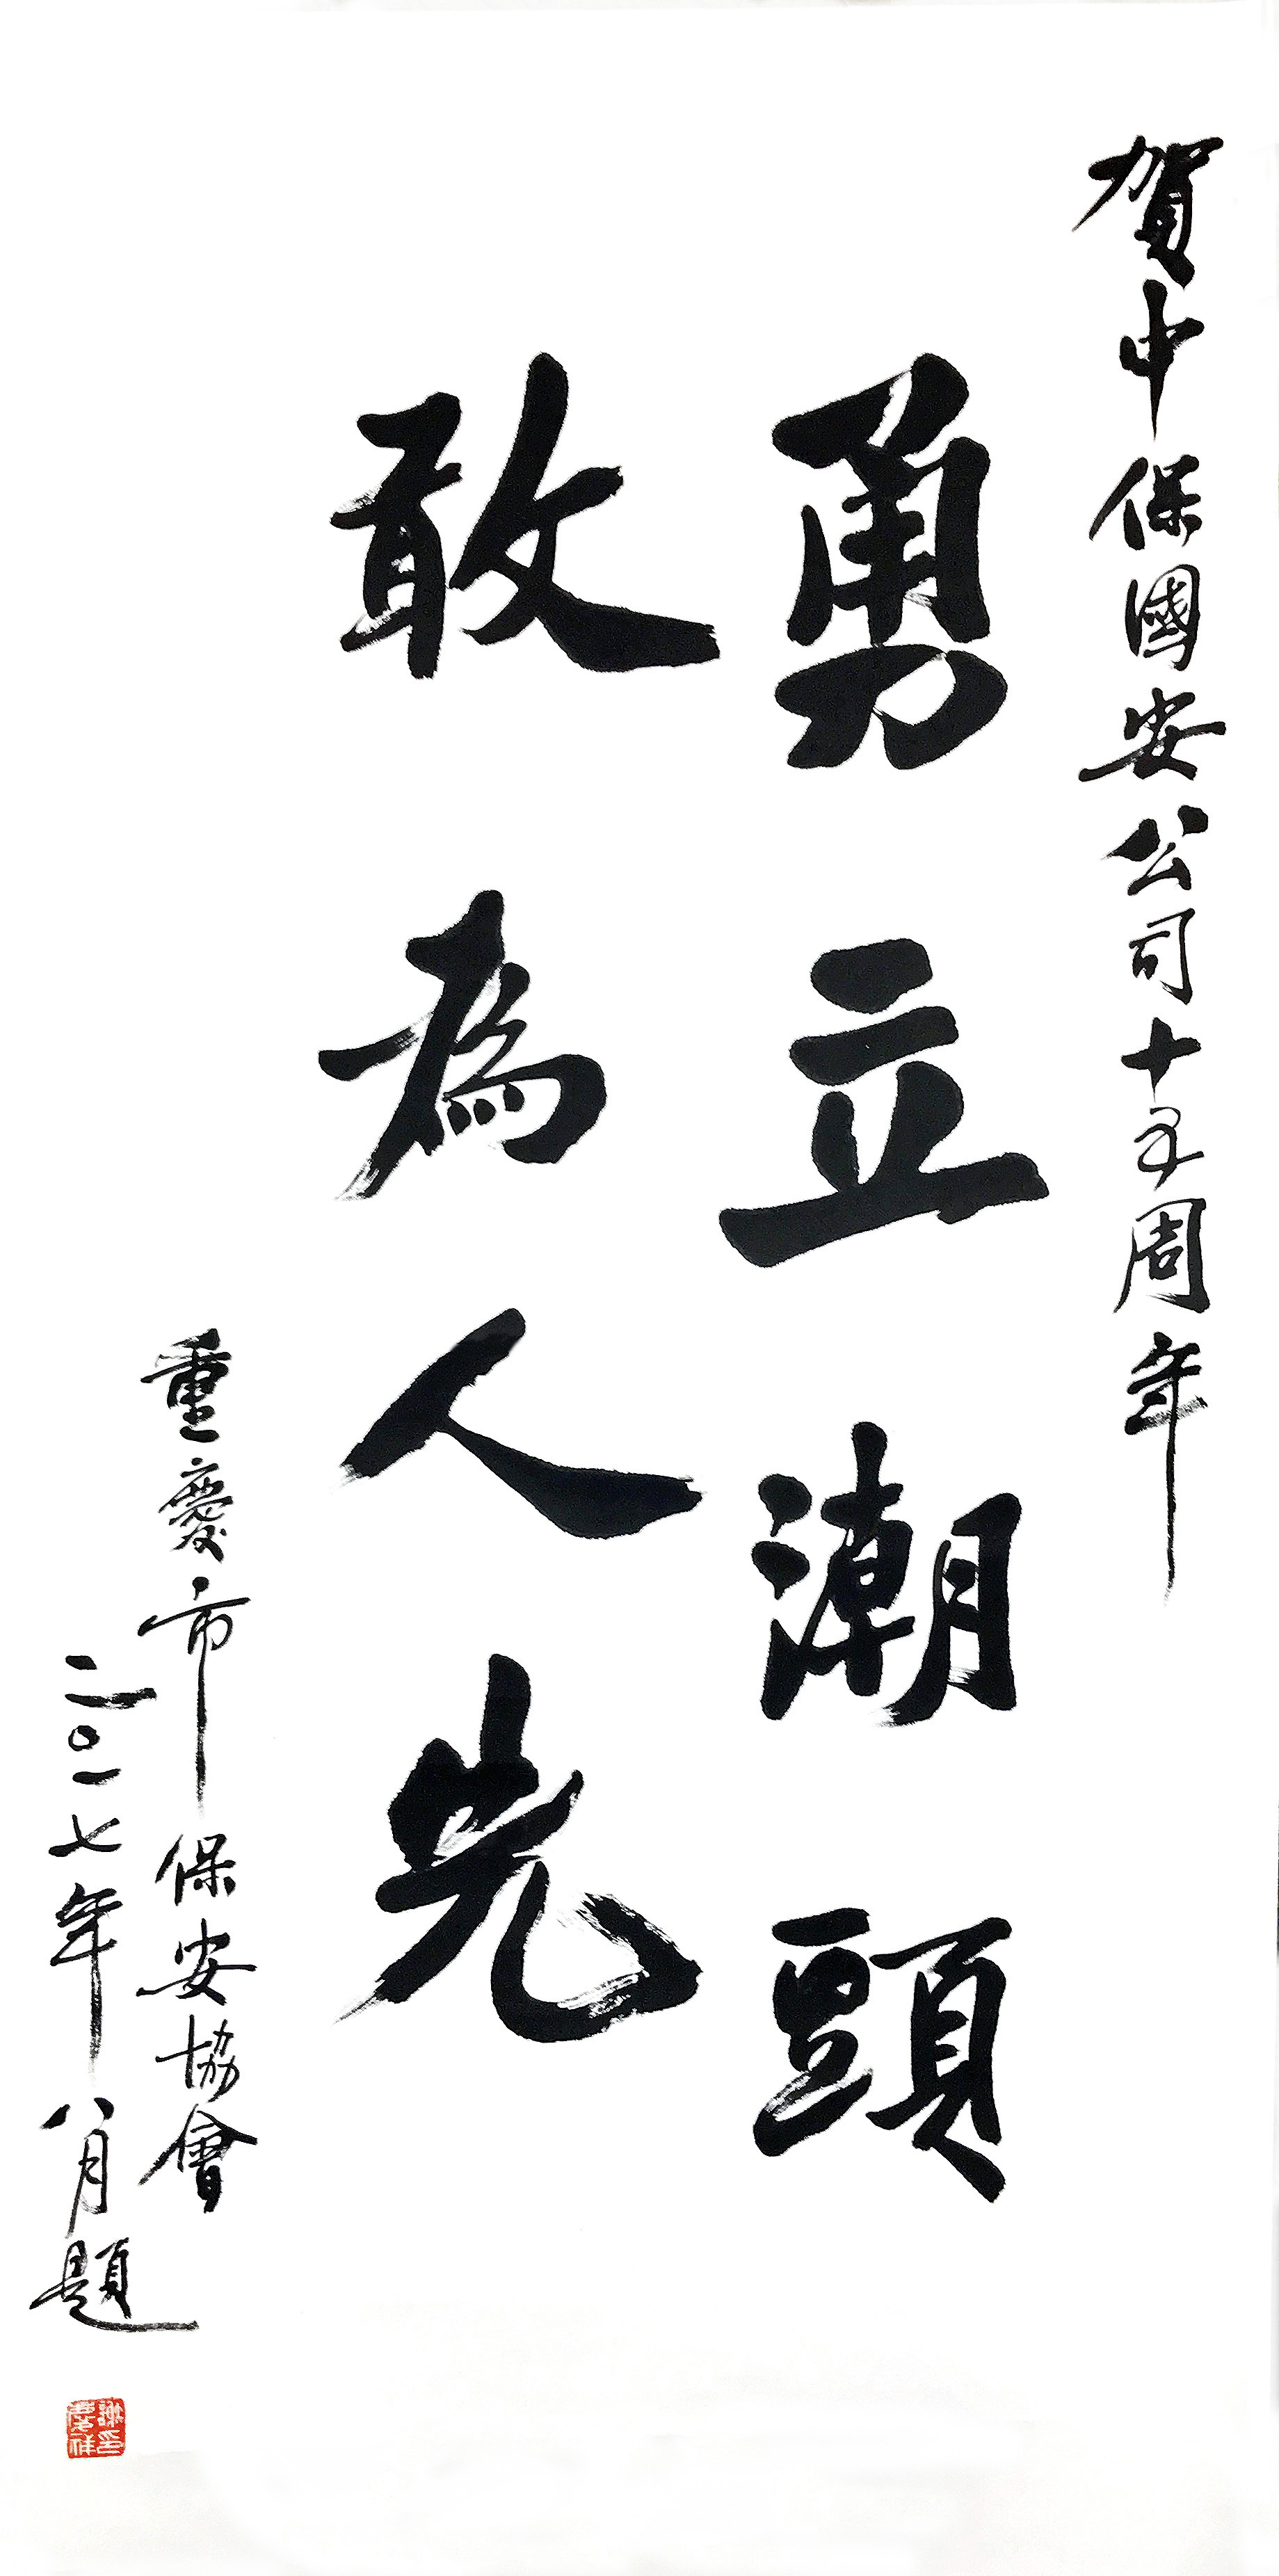 賀中保國安公司十五周年
勇立潮頭
敢為人先
重慶市保安協會
二〇一七年八月題